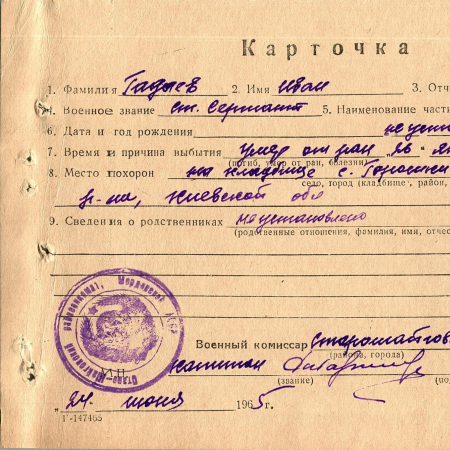 Карточка
1. Фамилия Гадяев 2. Имя Иван 3. Отч
4. Военное звание ст. Сержант 5. Наименование части
6. Дата и год рождения не уст
7. Время и причина выбытия Умер от ран "26" я
(погиб, умер от ран, болезни)
8. Место похорон на кладбище с. Горошки
село, город (кладбище, район,
р-на, Киевской обл
9. Сведения о родственниках не установлено
(родственные отношения, фамилия, имя, отчес
Военный комиссар Старошайгов
(района, города)
М.П. капитан
(звание) (по
"24" июня 1965 г.
Г-147465